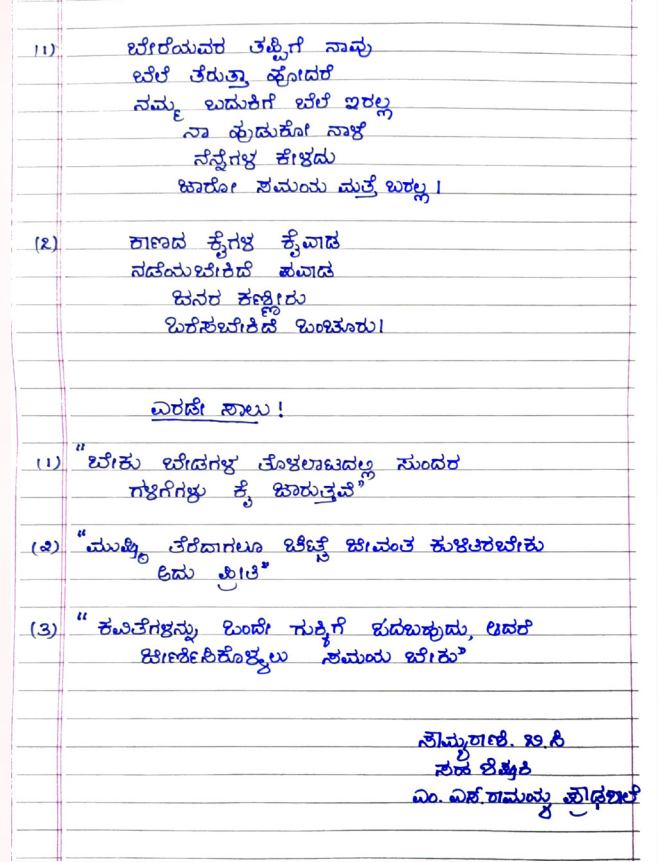 (1) ಬೇರೆಯವರ ತಪ್ಪಿಗೆ ನಾವು
ಬೆಲೆ ತೆರುತ್ತಾ ಹೋದರೆ
ನಮ್ಮ ಬದುಕಿಗೆ ಬೆಲೆ ಇರಲ್ಲ
ನಾ ಹುಡುಕೋ ನಾಳೆ
ನೆನ್ನೆಗಳ ಕೇಳದು
ಜಾರೋ ಸಮಯ ಮತ್ತೆ ಬರಲ್ಲ !
(೭) ಕಾಣದ ಕೈಗಳ ಕೈವಾಡ
ನಡೆಯಬೇಕಿದೆ ಪವಾಡ
ಜನರ ಕಣ್ಣೀರು
ಒರೆಸಬೇಕಿದೆ ಒಂಚೂರು !
ಎರಡೇ ಸಾಲು !
(1) "ಬೇಕು ಬೇಡಗಳ ತೊಳಲಾಟದಲ್ಲಿ ಸುಂದರ
ಗಳಿಗೆಗಳು ಕೈ ಜಾರುತ್ತವೆ"
(೨) "ಮುಷ್ಠಿ ತೆರೆದಾಗಲೂ ಚಿಟ್ಟೆ ಜೀವಂತ ಕುಳಿತಿರಬೇಕು
ಅದು ಪ್ರೀತಿ"
(3) "ಕವಿತೆಗಳನ್ನು ಒಂದೇ ಗುಕ್ಕಿಗೆ ಓದಬಹುದು, ಆದರೆ
ಜೀರ್ಣಿಸಿಕೊಳ್ಳಲು ಸಮಯ ಬೇಕು"
ಸೌಮ್ಯರಾಣಿ. ಬಿ.ಸಿ
ಸಹ ಶಿಕ್ಷಕಿ
ಎಂ. ಎಸ್. ರಾಮಯ್ಯ ಪ್ರೌಢಶಾಲೆ